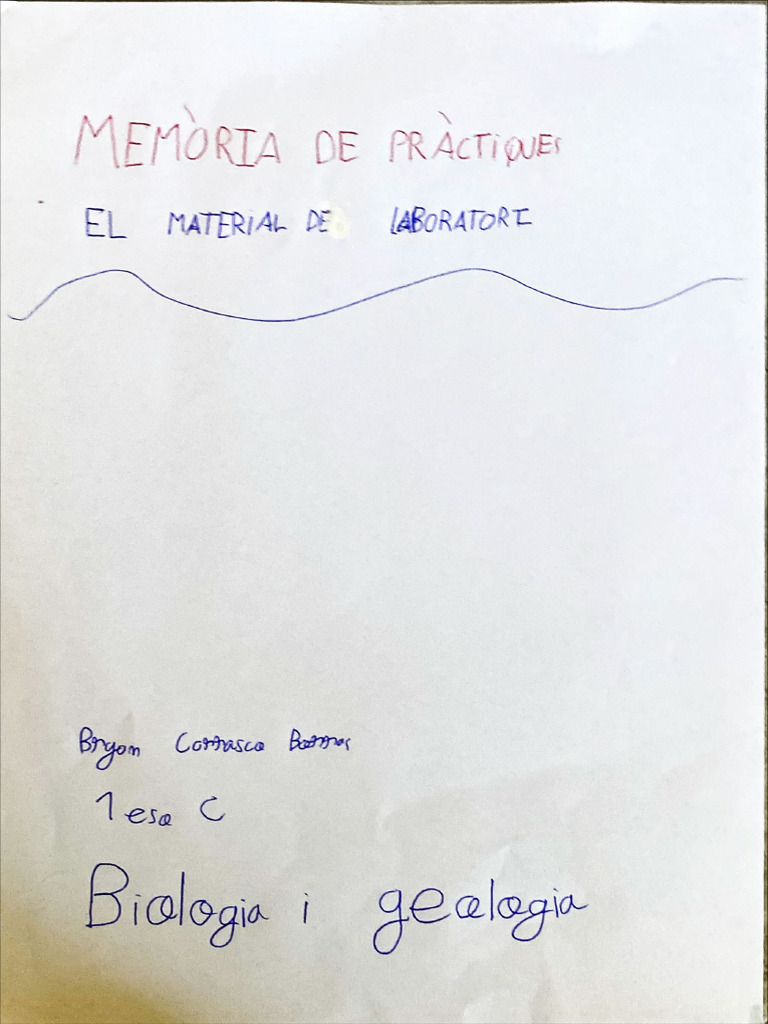 MEMÒRIA DE PRÀCTIQUES
EL MATERIAL DE LABORATORI
Bryan Carrasco
1 eso C
Biologia i geologia